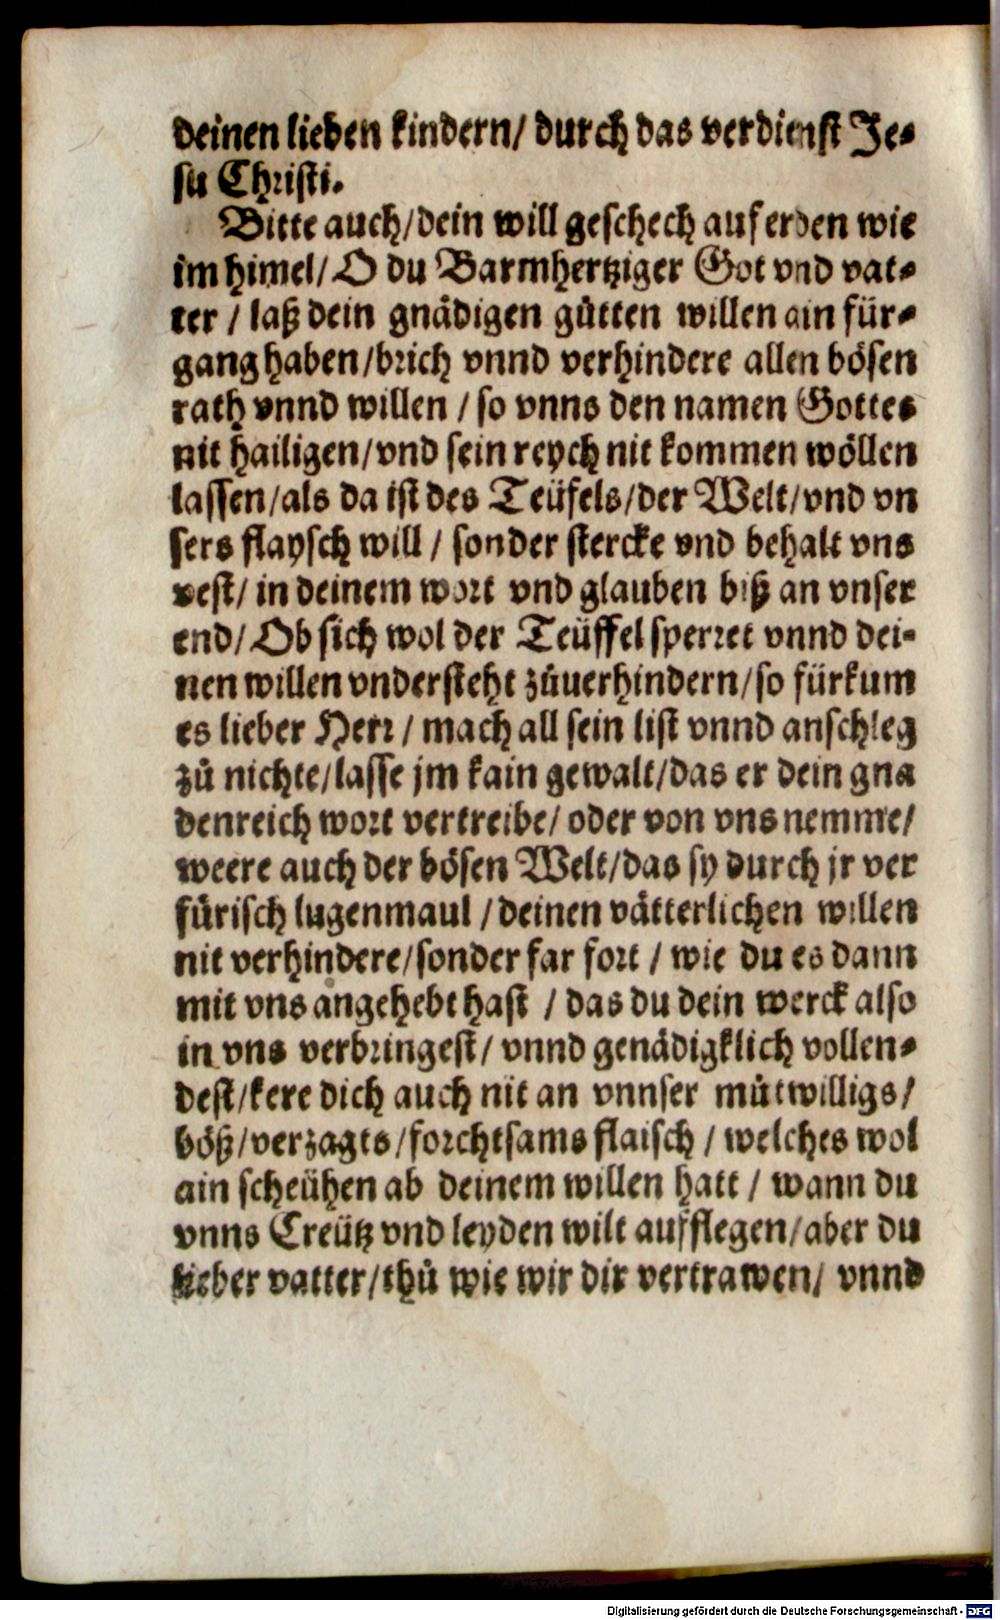 deinen lieben kindern/ durch das verdienst Je⸗
su Christi.
Bitte auch/dein will geschech auf erden wie
im himel/ O du Barmhertziger Got vnd vat⸗
ter / laß dein gnädigen gütten willen ain für⸗
gang haben/brich vnnd verhindere allen bösen
rath vnnd willen / so vnns den namen Gottes
nit hailigen/vnd sein reych nit kommen wöllen
lassen/als da ist des Teüfels/der Welt/vnd vn
sers flaysch will / sonder stercke vnd behalt vns
vest/ in deinem wort vnd glauben biß an vnser
end/ Ob sich wol der Teüffel sperret vnnd dei⸗
nen willen vndersteht zůuerhindern/so fürkum
es lieber Herr / mach all sein list vnnd anschleg
zů nichte/lasse jm kain gewalt/das er dein gna
denreich wort vertreibe/ oder von vns nemme/
weere auch der bösen Welt/das sy durch jr ver
fürisch lugenmaul / deinen vätterlichen willen
nit verhindere/sonder far fort / wie du es dann
mit vns angehebt hast / das du dein werck also
in vns verbringest/ vnnd genädigklich vollen⸗
dest/kere dich auch nit an vnnser můtwilligs/
böß/verzagts/forchtsams flaisch / welches wol
ain scheühen ab deinem willen hatt / wann du
vnns Creütz vnd leyden wilt aufflegen/aber du
lieber vatter/thů wie wir dir vertrawen/ vnnd
Digitalisierung gefördert durch die Deutsche Forschungsgemeinschaft - DFG